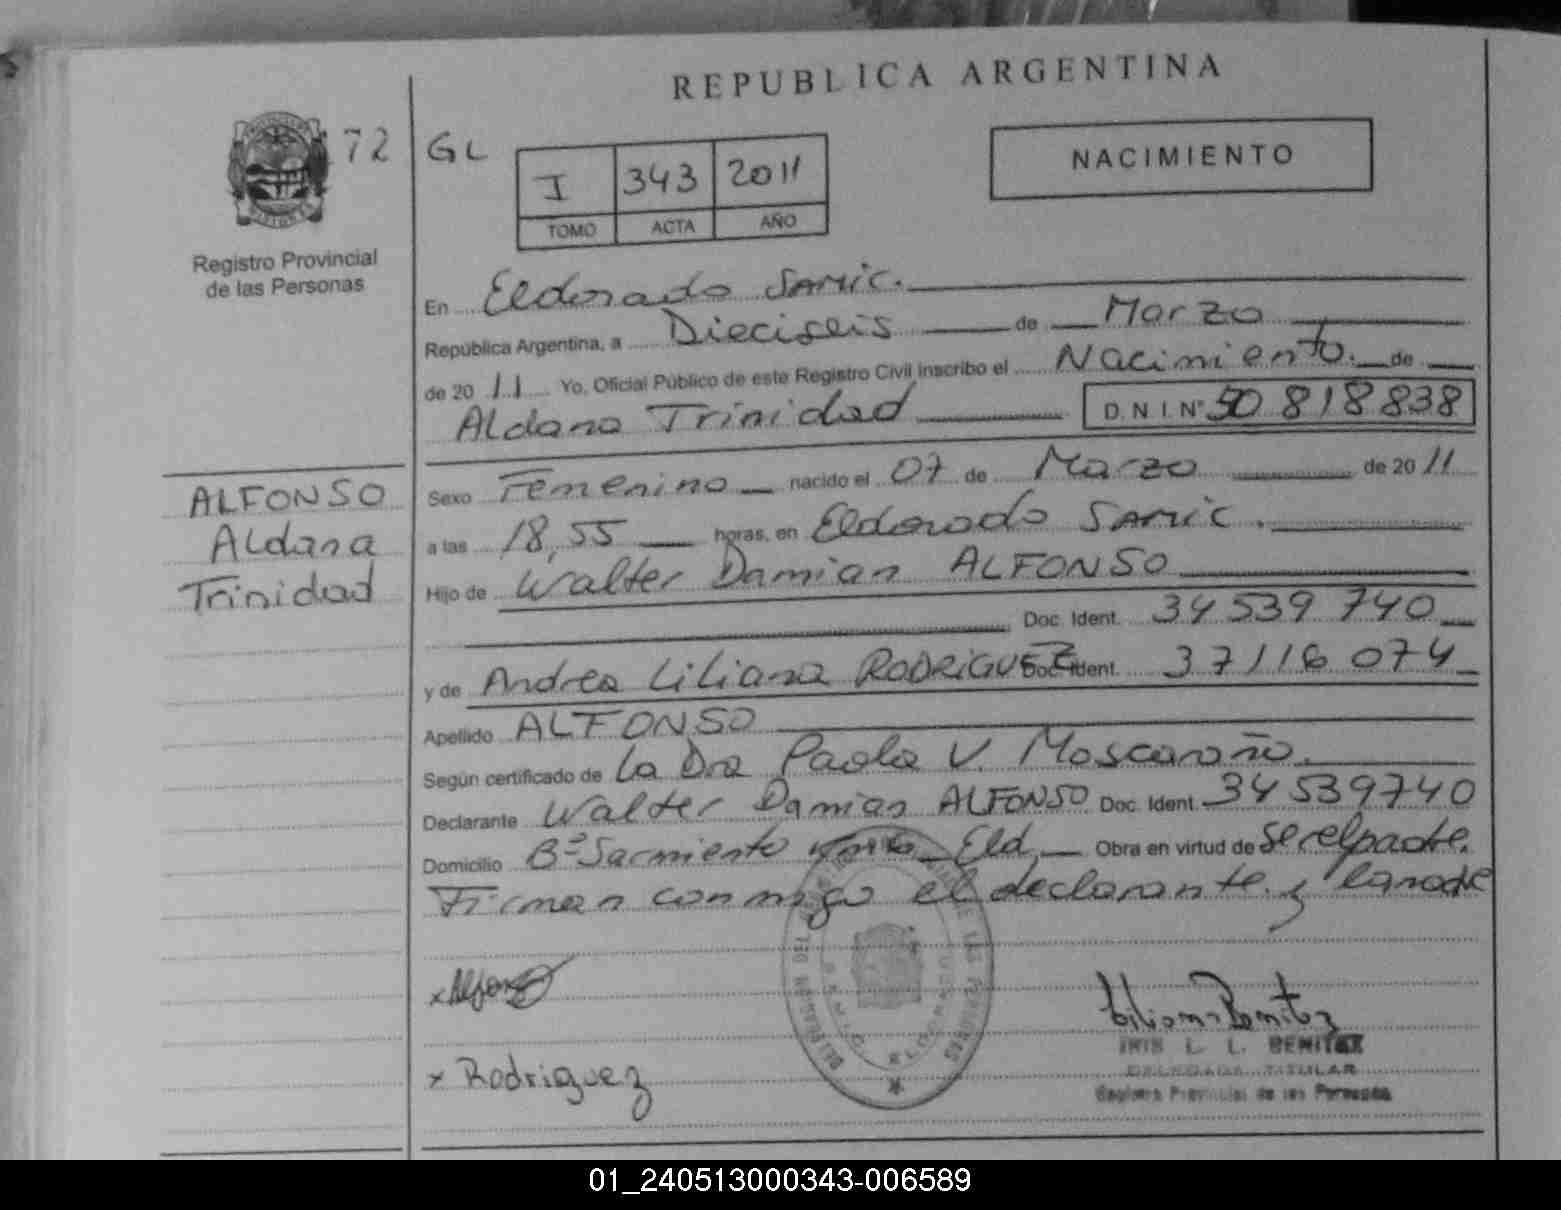 REPUBLICA ARGENTINA
72 GL
I 343 2011
TOMO ACTA AÑO
NACIMIENTO
Registro Provincial
de las Personas
En Eldorado Samic.
República Argentina, a Dieciseis de Marzo
de 2011 Yo, Oficial Público de este Registro Civil inscribo el Nacimiento. de
Aldana Trinidad D. N. I. Nº 50 818 838
ALFONSO
Aldana
Trinidad
Sexo Femenino nacido el 07 de Marzo de 2011
a las 18,55 horas, en Eldorado Samic.
Hijo de Walter Damian ALFONSO
Doc. Ident. 34 539 740
y de Andrea Liliana RODRIGUEZ Doc. Ident. 37116 074
Apellido ALFONSO
Según certificado de La Dra Paola V.
Declarante Walter Damian ALFONSO Doc. Ident. 34 539740
Domicilio Bº Sarmiento Eld. Obra en virtud de ser el padre.
Firman conmigo el declarante y la madre
x Alfonso
x Rodriguez
IRIS L. L. BENITEZ
DELEGADA TITULAR
Registro Provincial de las Personas
01_240513000343-006589